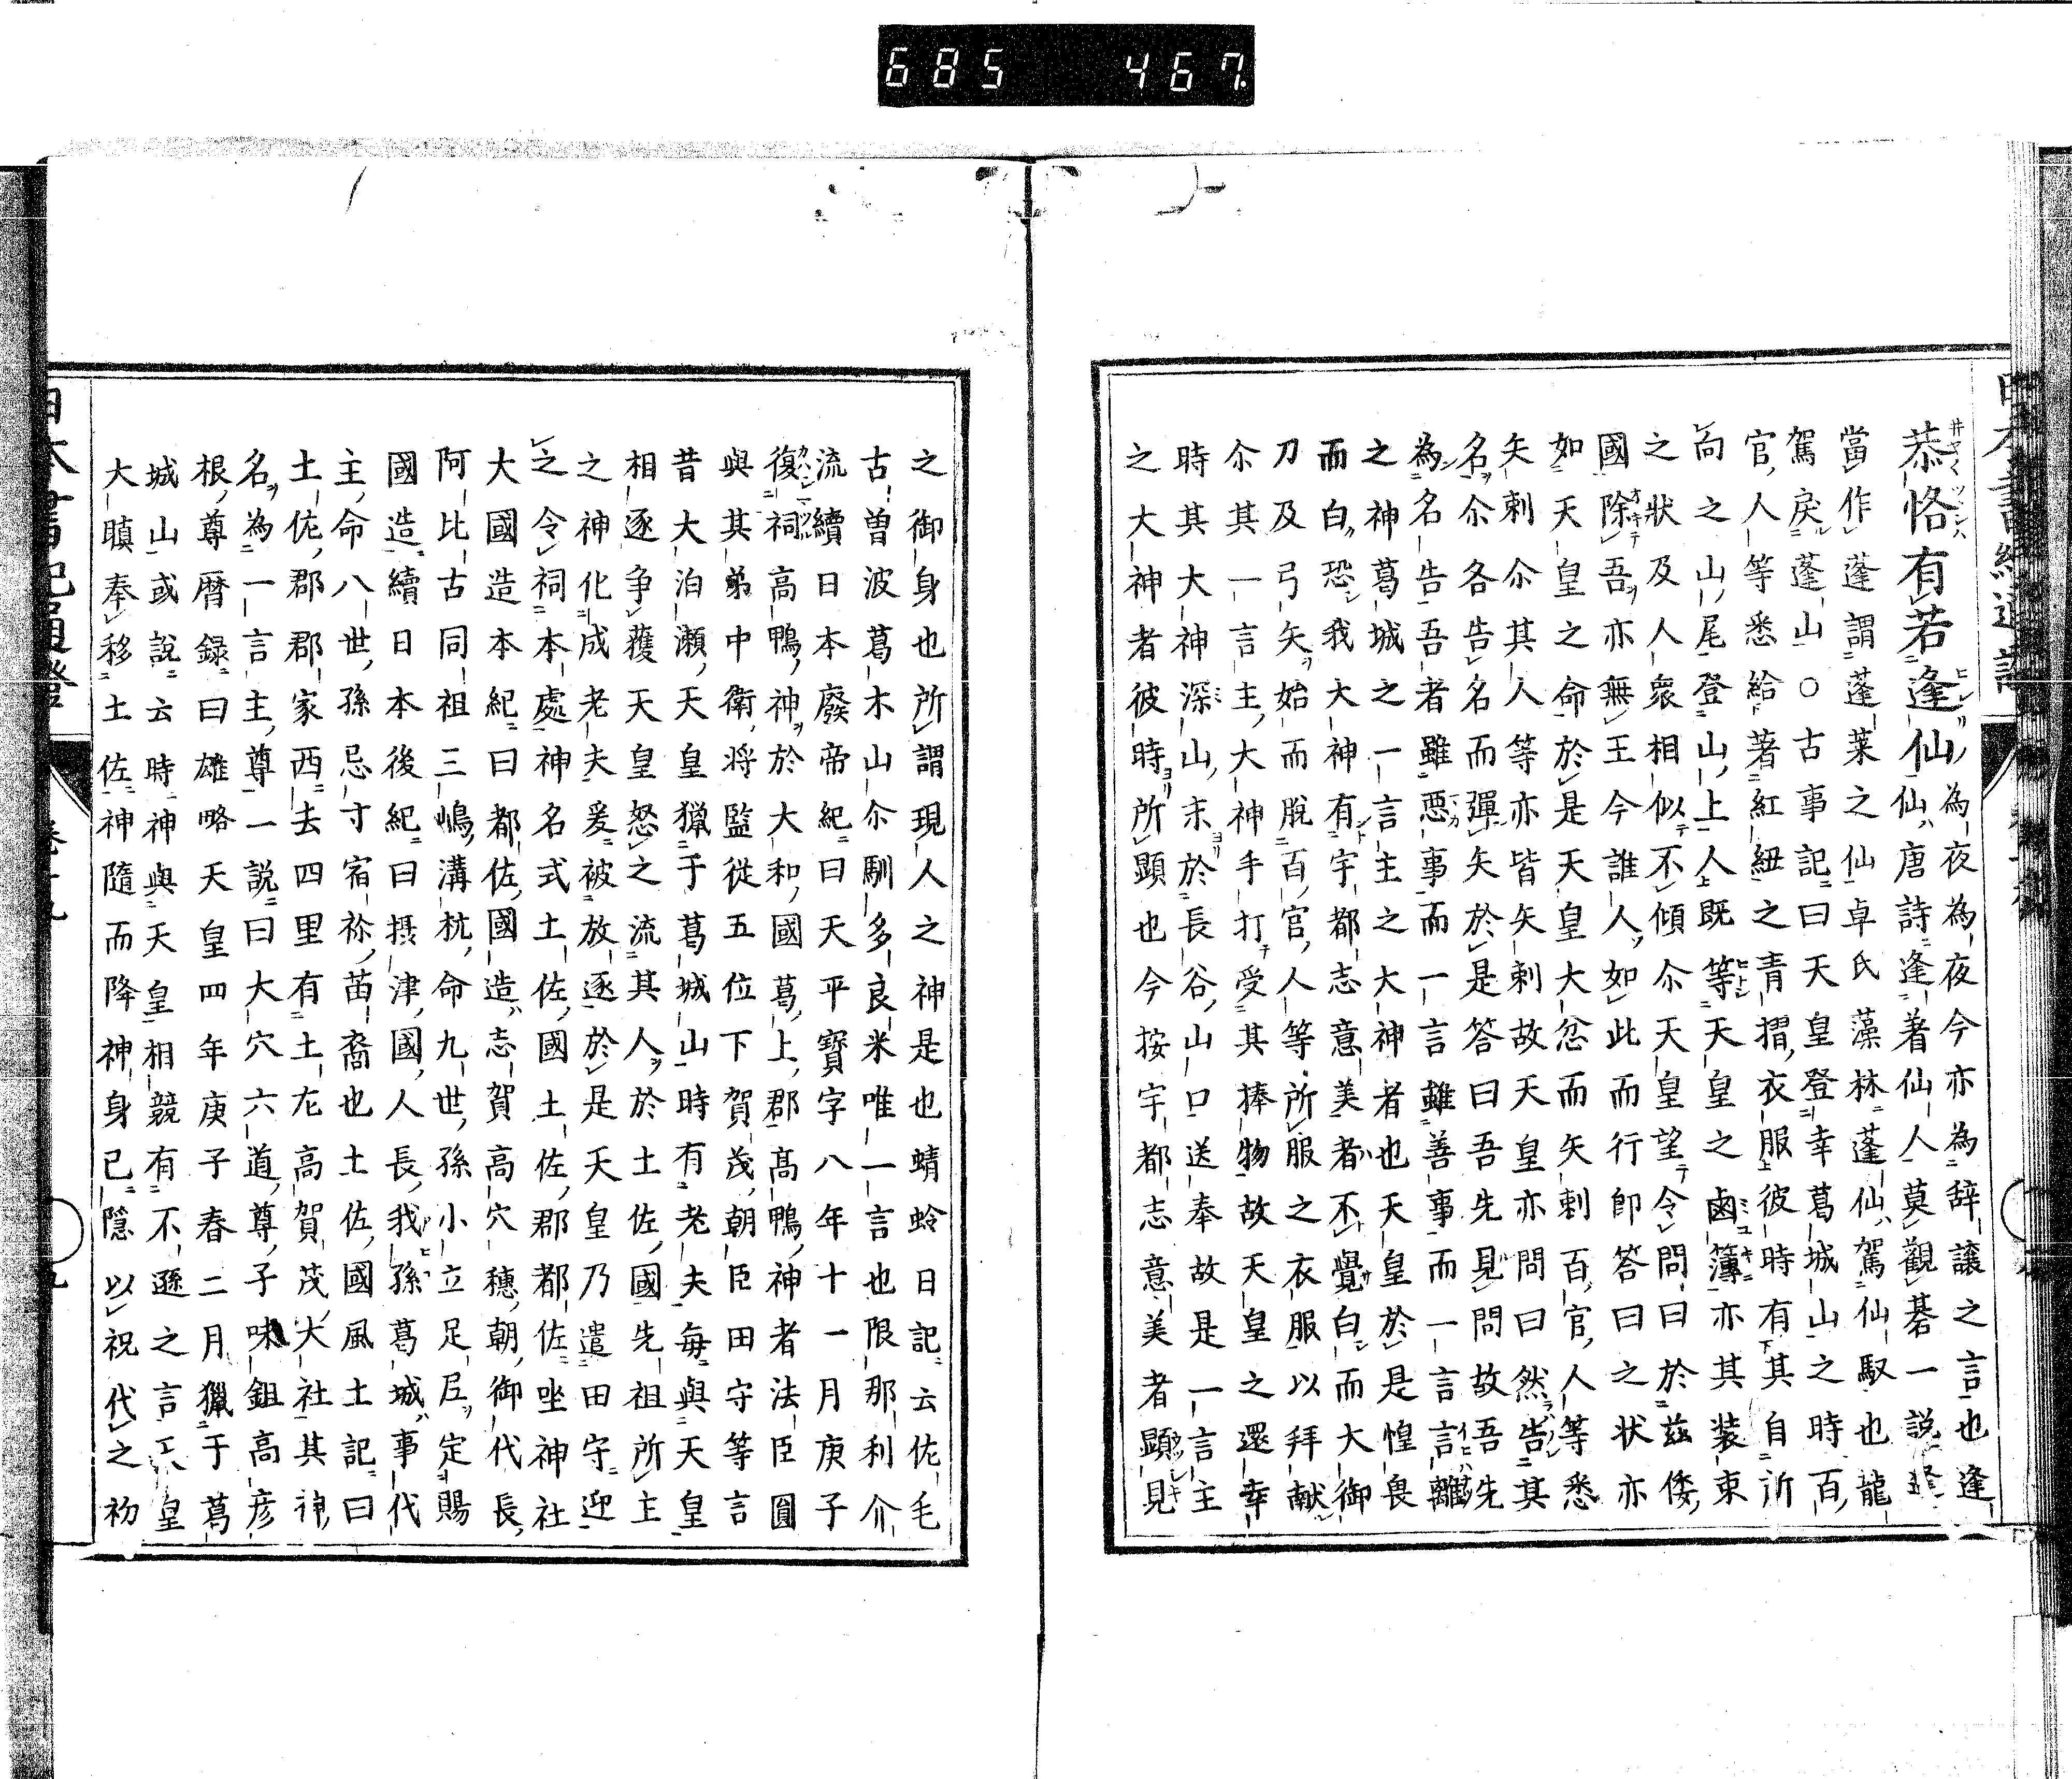 恭恪有若逢仙
為夜為夜今亦為辞譲之言也逢
仙ハ唐詩逢着仙人莫觀碁一説逢
當作蓬謂蓬莱之仙卓氏藻林蓬仙ハ駕仙馭也龍
駕戻蓬山○古事記曰天皇登幸葛城山之時百
官人等悉給著紅紐之青摺衣服彼時有其自所
向之山尾登山上人既等天皇之鹵簿亦其装束
之状及人衆相似不傾尒天皇望令問曰於茲倭
國除吾亦無王今誰人如此而行即答曰之状亦
如天皇之命於是天皇大忿而矢刺百官人等悉
矢刺尒其人等亦皆矢刺故天皇亦問曰然告其
名尒各告名而彈矢於是答曰吾先見問故吾先
為名告吾者雖惡事而一言雖善事而一言言離
之神葛城之一言主之大神者也天皇於是惶畏
而白恐我大神有宇都志意美者不覺白而大御
刀及弓矢始而脱百官人等所服之衣服以拜献
尒其一言主大神手打受其捧物故天皇之還幸
時其大神深山末於長谷山口送奉故是一言主
之大神者彼時所顯也今按宇都志意美者顯見
之御身也所謂現人之神是也蜻蛉日記云佐毛
古曽波葛木山尒馴多良米唯一言也限那利介
流續日本廢帝紀曰天平寳字八年十一月庚子
復祠高鴨神於大和國葛上郡高鴨神者法臣圓
與其弟中衛将監従五位下賀茂朝臣田守等言
昔大泊瀬天皇猟于葛城山時有老夫毎與天皇
相逐争獲天皇怒之流其人於土佐國先祖所主
之神化成老夫爰被放逐於是天皇乃遣田守迎
之令祠本處神名式土佐國土佐郡都佐坐神社
大國造本紀曰都佐國造志賀高穴穗朝御代長
阿比古同祖三嶋溝杭命九世孫小立足尼定賜
國造續日本後紀曰摂津國人長我孫葛城事代
主命八世孫忌寸宿祢苗裔也土佐國風土記曰
土佐郡郡家西去四里有土左高賀茂大社其神
名為一言主尊一説曰大穴六道尊子味鉏高彦
根尊暦録曰雄略天皇四年庚子春二月猟于葛
城山或説云時神與天皇相競有不遜之言天皇
大瞋奉移土佐神隨而降神身已隠以祝代之初
685 467